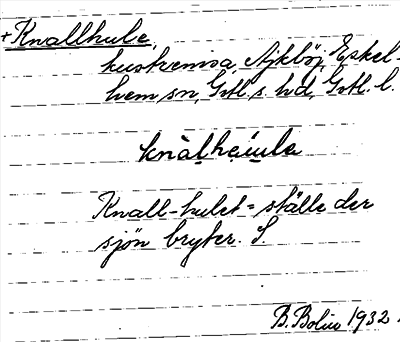 + Knallhule,
kustremsa, Ajkböj, Eskel-
hem sn, Gotl. s. hd, Gotl. l.
knàlhęi̯ulę
Knall-hulet = ställe der
sjön bryter. S.
B. Bolin 1932.